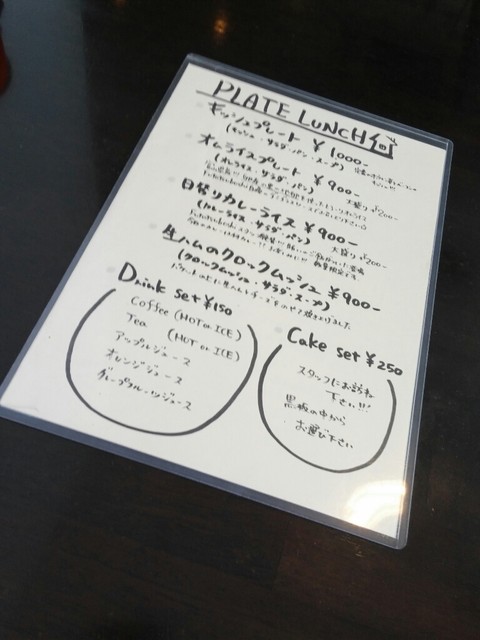 PLATE LUNCH
キッシュプレート ¥1000-
(キッシュ・サラダ・パン・スープ)
オムライスプレート ¥900-
(オムライス・サラダ・パン) 大盛り ¥200-
日替りカレーライス ¥900-
(カレーライス・サラダ・パン) 大盛り ¥200-
生ハムのクロックムッシュ ¥900-
(クロックムッシュ・サラダ・スープ)
Drink set ¥150
Coffee (HOT or ICE)
Tea (HOT or ICE)
アップルジュース
オレンジジュース
グレープフルーツジュース
Cake set ¥250
スタッフにお訪ね
下さい!!!
黒板の中から
お選び下さい